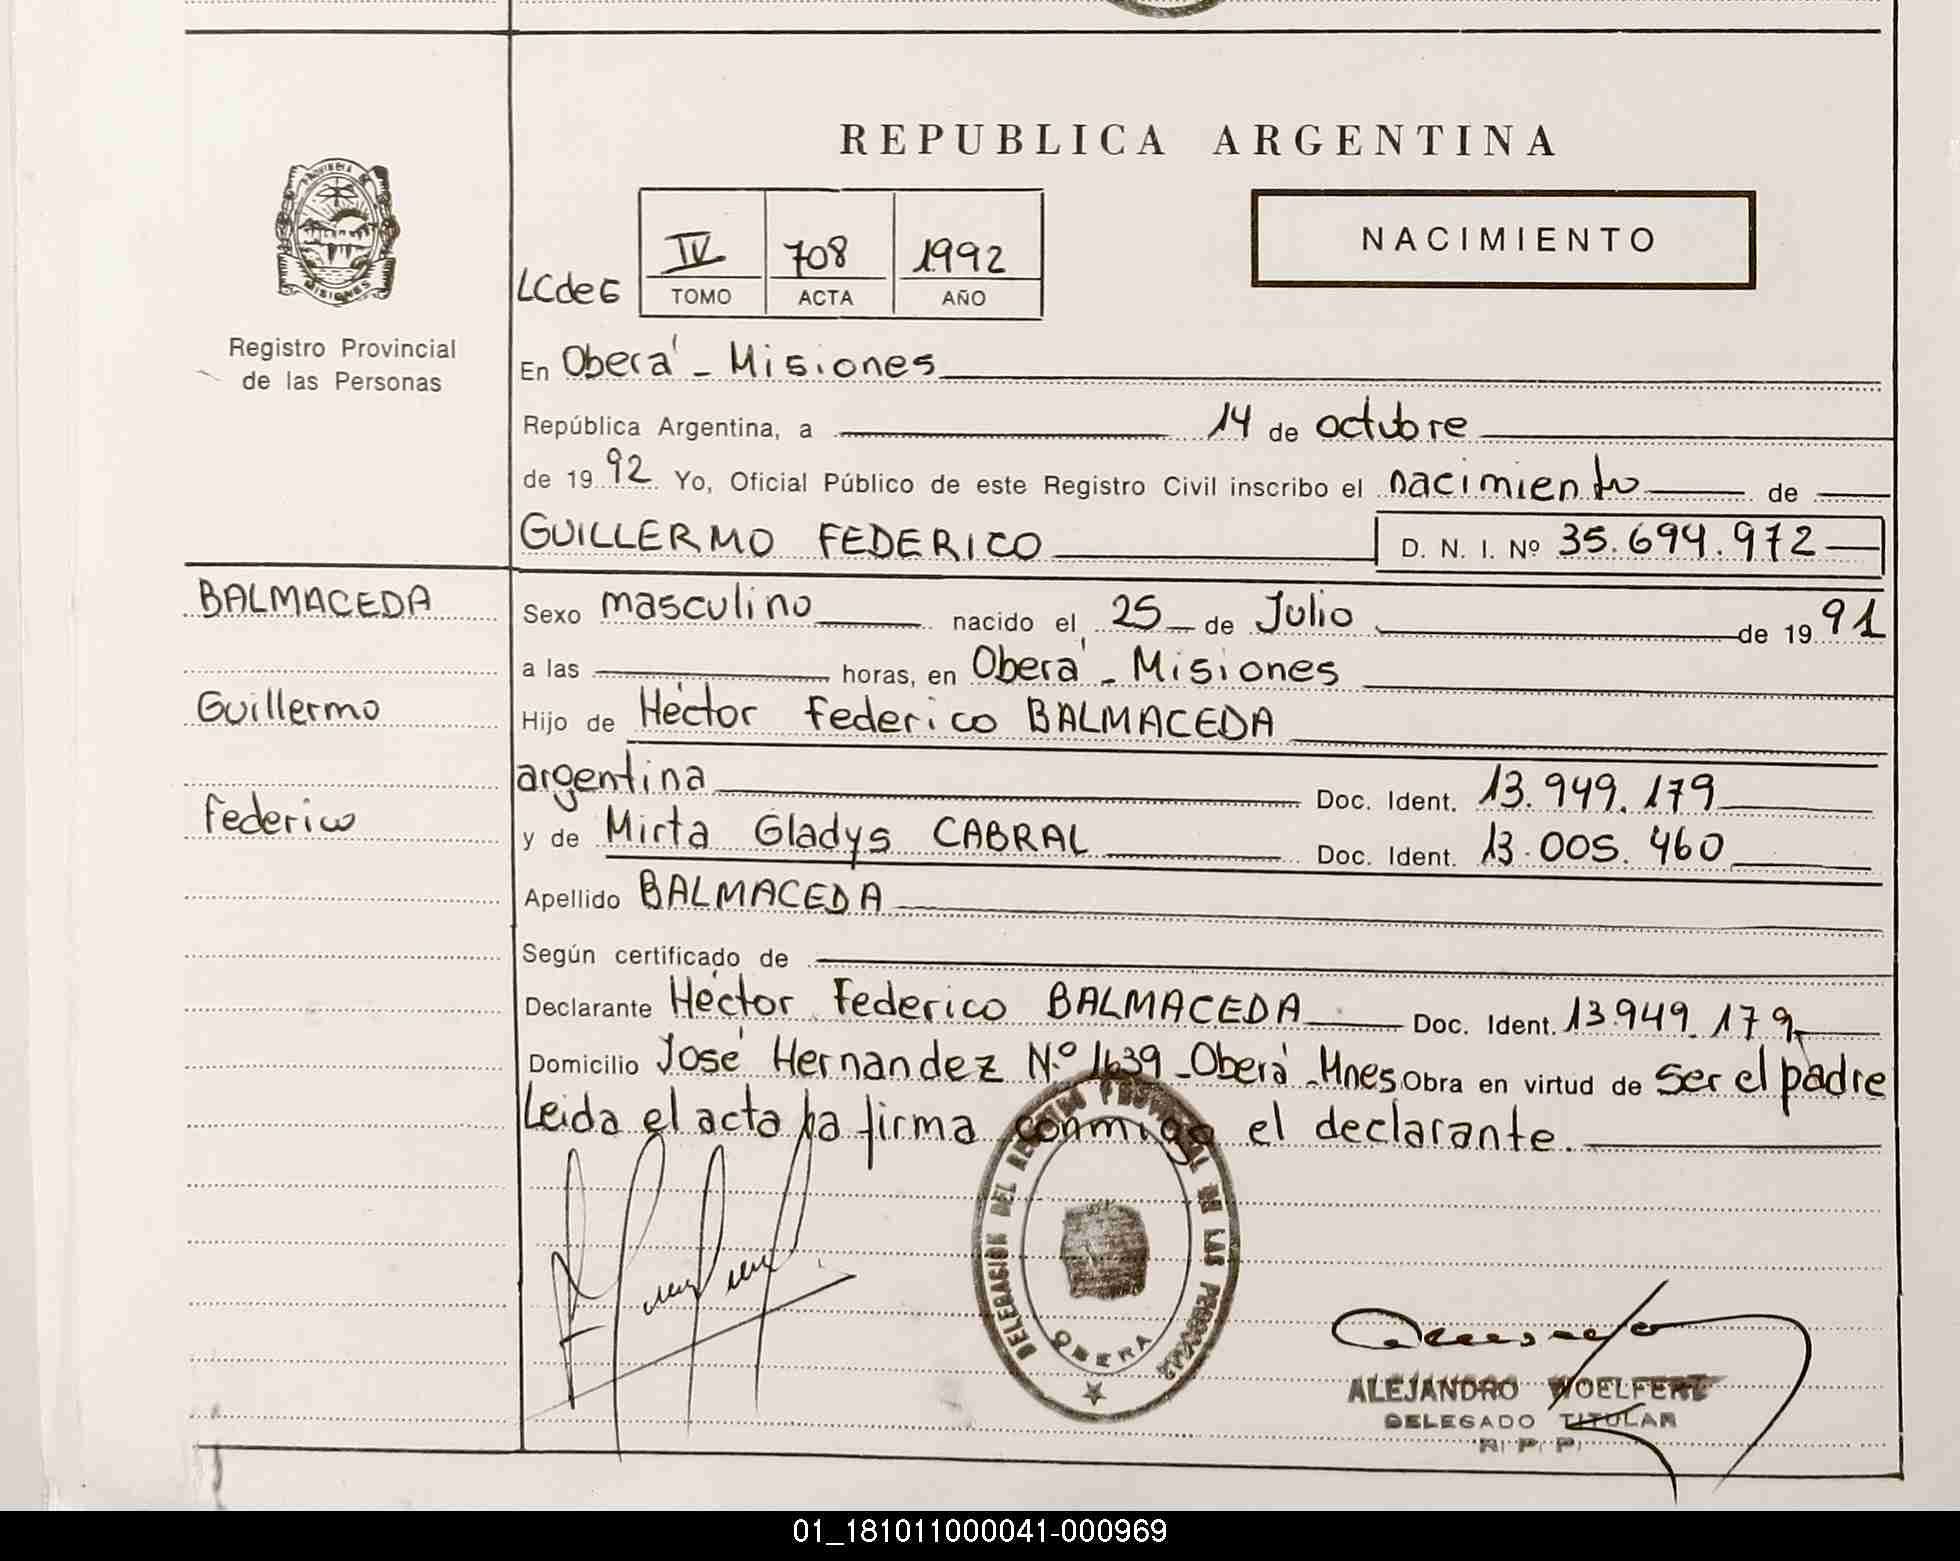 REPUBLICA ARGENTINA
PROVINCIA DE
MISIONES
Registro Provincial
de las Personas
LCdeE
IV 708 1992
TOMO ACTA AÑO
NACIMIENTO
En Oberá - Misiones
República Argentina, a 14 de octubre
de 1992 Yo, Oficial Público de este Registro Civil inscribo el nacimiento de
GUILLERMO FEDERICO D. N. I. Nº 35.694.972
BALMACEDA
Guillermo
Federico
Sexo masculino nacido el 25 de Julio de 1991
a las horas, en Oberá - Misiones
Hijo de Héctor Federico BALMACEDA
argentina Doc. Ident. 13.949.179
y de Mirta Gladys CABRAL Doc. Ident. 13.005.460
Apellido BALMACEDA
Según certificado de
Declarante Héctor Federico BALMACEDA Doc. Ident. 13.949.179
Domicilio José Hernandez N.º 1639 - Oberá - Mnes Obra en virtud de ser el padre
Leida el acta la firma conmigo el declarante.
DELEGACION DEL REGISTRO PROVINCIAL DE LAS PERSONAS
OBERA
ALEJANDRO WOELFERT
DELEGADO TITULAR
R. P. P.
01_181011000041-000969